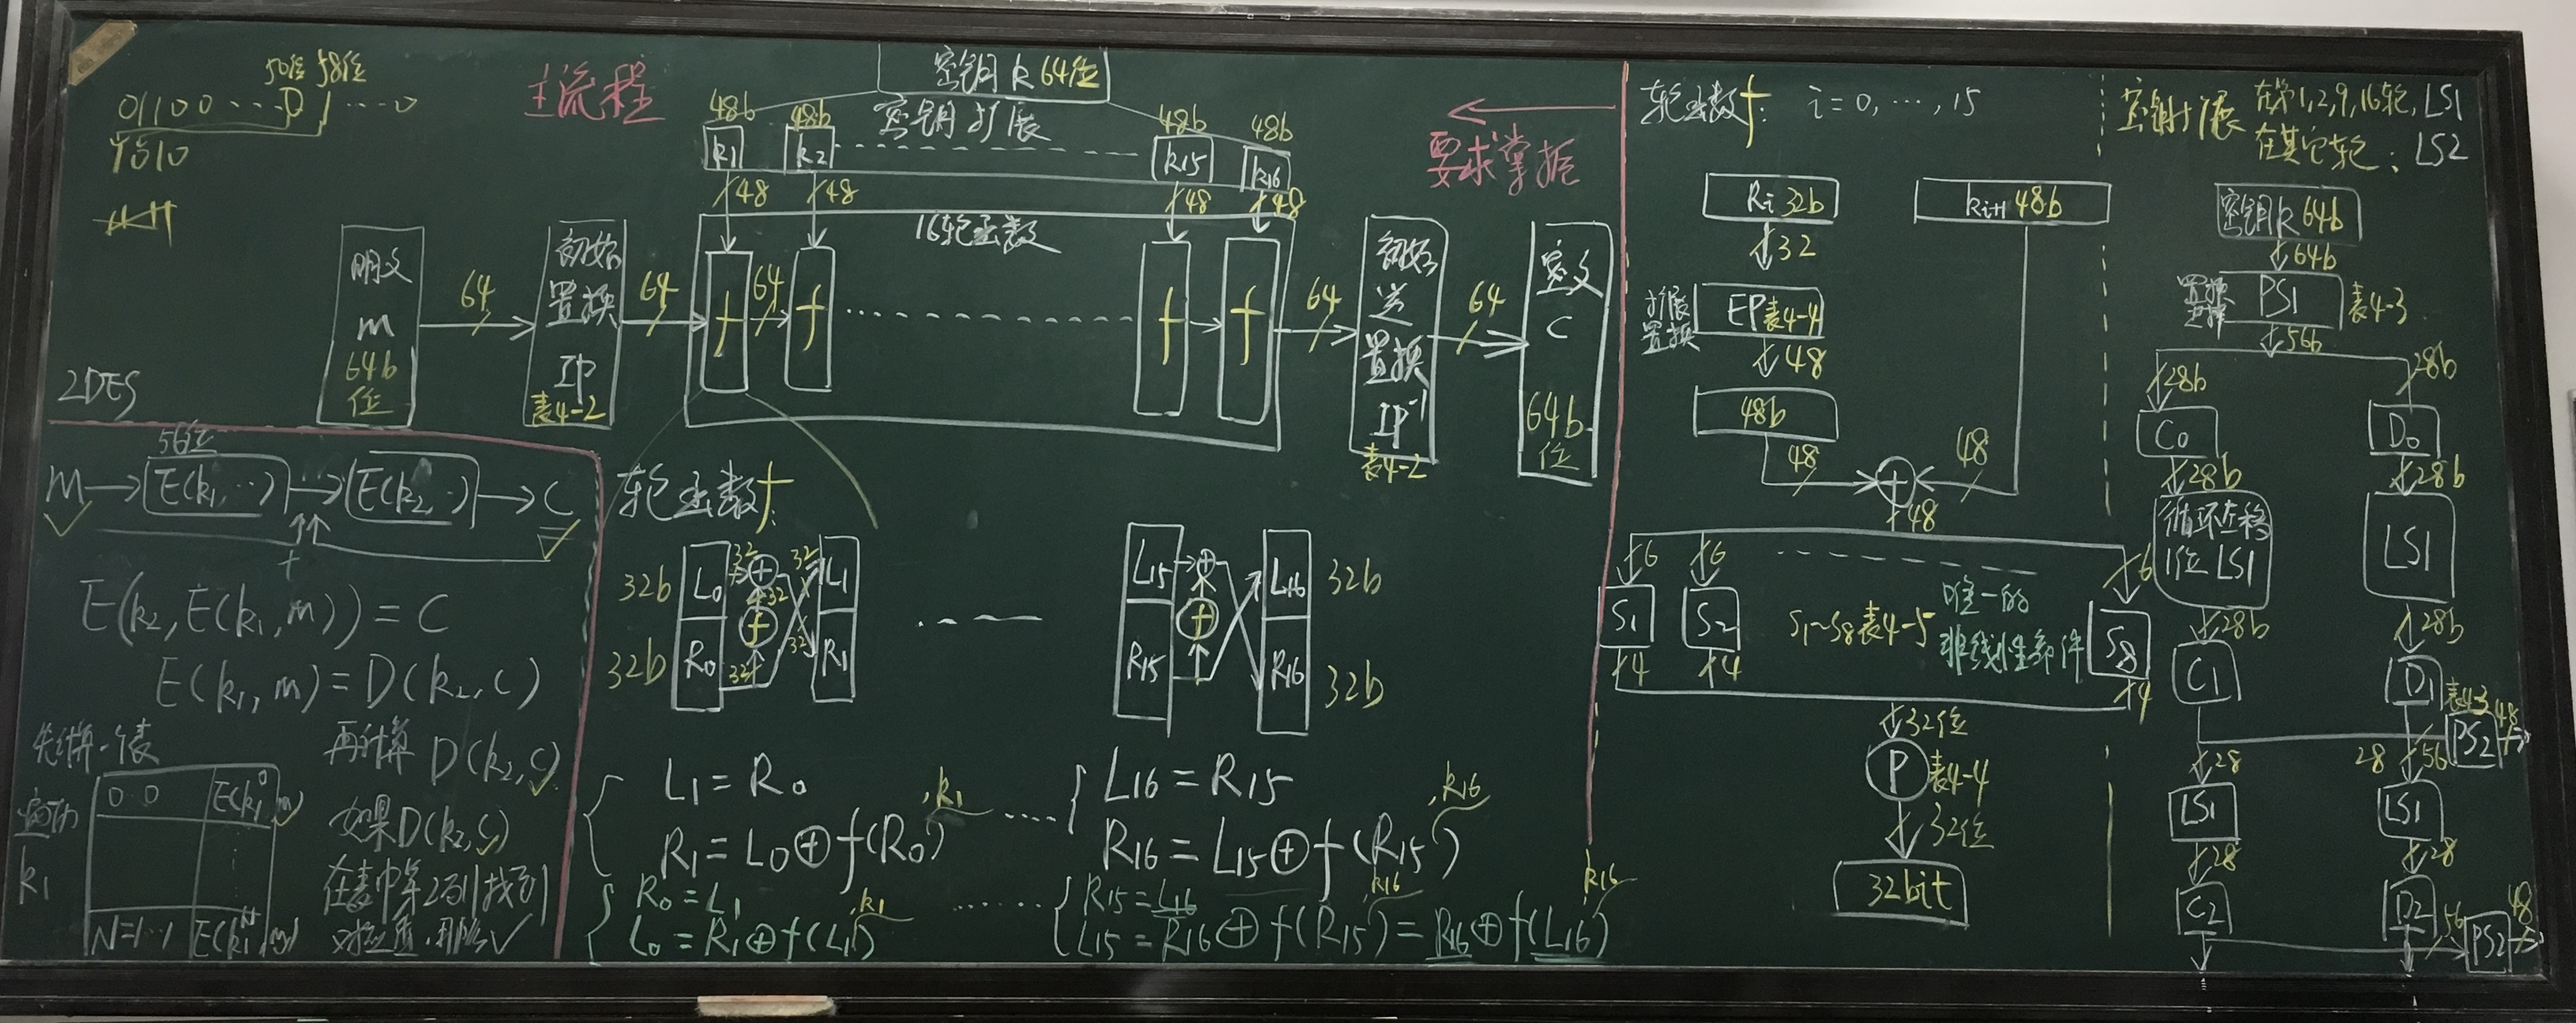 50位 58位
01100···0 1····0
1010
主流程
密钥k 64位
密钥扩展
48b 48b 48b 48b
k1 k2 k15 k16
48 48 48 48
16轮函数
明文
m
64b
位
64
初始
置换
IP
表4-2
64
f
64
f
f
f
64
初始
逆
置换
IP⁻¹
表4-2
64
密文
C
64b
位
要求掌握
2DES
56位
m→E(k1,··)→···→E(k2,·)→C
E(k2,E(k1,m))=C
E(k1,m)=D(k2,C)
先计算一个表
k1
0··0 E(k1⁰,m)
N=1··1 E(k1ᴺ,m)
再计算 D(k2,C)
如果D(k2,C)
在表中第2列找到
轮函数f:
32b L0 32 ⊕ 32 L1
32 f
32b R0 32 32 R1
L15 ⊕ L16 32b
f
R15 R16 32b
L1=R0
R1=L0⊕f(R0),k1
L16=R15
R16=L15⊕f(R15),k16
R0=L1
L0=R1⊕f(L1),k1
R15=L16
L15=R16⊕f(R15),k16=R16⊕f(L16),k16
轮函数f: i=0,···,15
Ri 32b
ki+1 48b
32
扩展
置换
EP表4-4
48
48b
48 ⊕ 48
48
6 6 6
S1 S2 S1~S8表4-5 唯一的
非线性部件 S8
4 4 4
32位
P 表4-4
32位
32bit
密钥扩展 在第1,2,9,16轮,LS1
在其它轮: LS2
密钥k 64b
64b
置换
选择
PS1 表4-3
56b
28b 28b
C0 D0
28b 28b
循环左移
1位LS1
LS1
28b 28b
C1 D1
表4-3 48
PS2
28 28 56
LS1 LS1
28 28
C2 D2
56 PS2 48